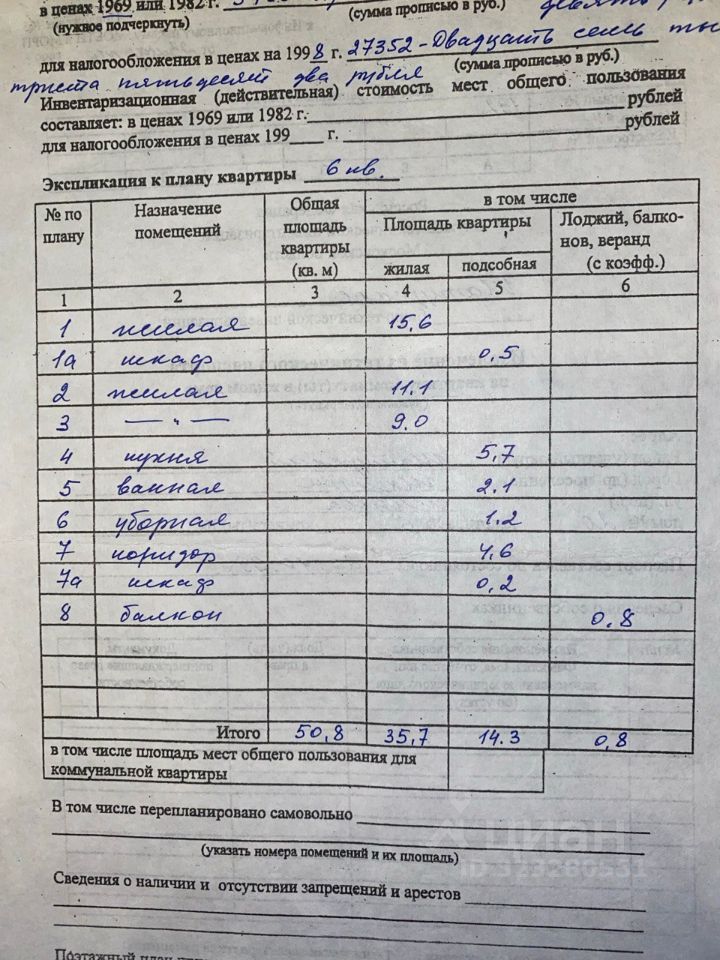 в ценах 1969 или 1982 г.
(нужное подчеркнуть) (сумма прописью в руб.)
для налогообложения в ценах на 1998 г. 27352-Двадцать семь ты
триста пятьдесят два рубля (сумма прописью в руб.)
Инвентаризационная (действительная) стоимость мест общего пользования
составляет: в ценах 1969 или 1982 г. рублей
для налогообложения в ценах 199 г. рублей
Экспликация к плану квартиры 6 кв.
№ по плану Назначение помещений Общая площадь квартиры (кв. м) в том числе
Площадь квартиры Лоджий, балко-
нов, веранд
(с коэфф.)
жилая подсобная
1 2 3 4 5 6
1 жилая 15,6
1а шкаф 0,5
2 жилая 11.1
3 — " — 9.0
4 кухня 5,7
5 ванная 2.1
6 уборная 1.2
7 коридор 4,6
7а шкаф 0,2
8 балкон 0,8
Итого 50,8 35,7 14.3 0,8
в том числе площадь мест общего пользования для
коммунальной квартиры
В том числе перепланировано самовольно
(указать номера помещений и их площадь)
Сведения о наличии и отсутствии запрещений и арестов
Поэтажный план